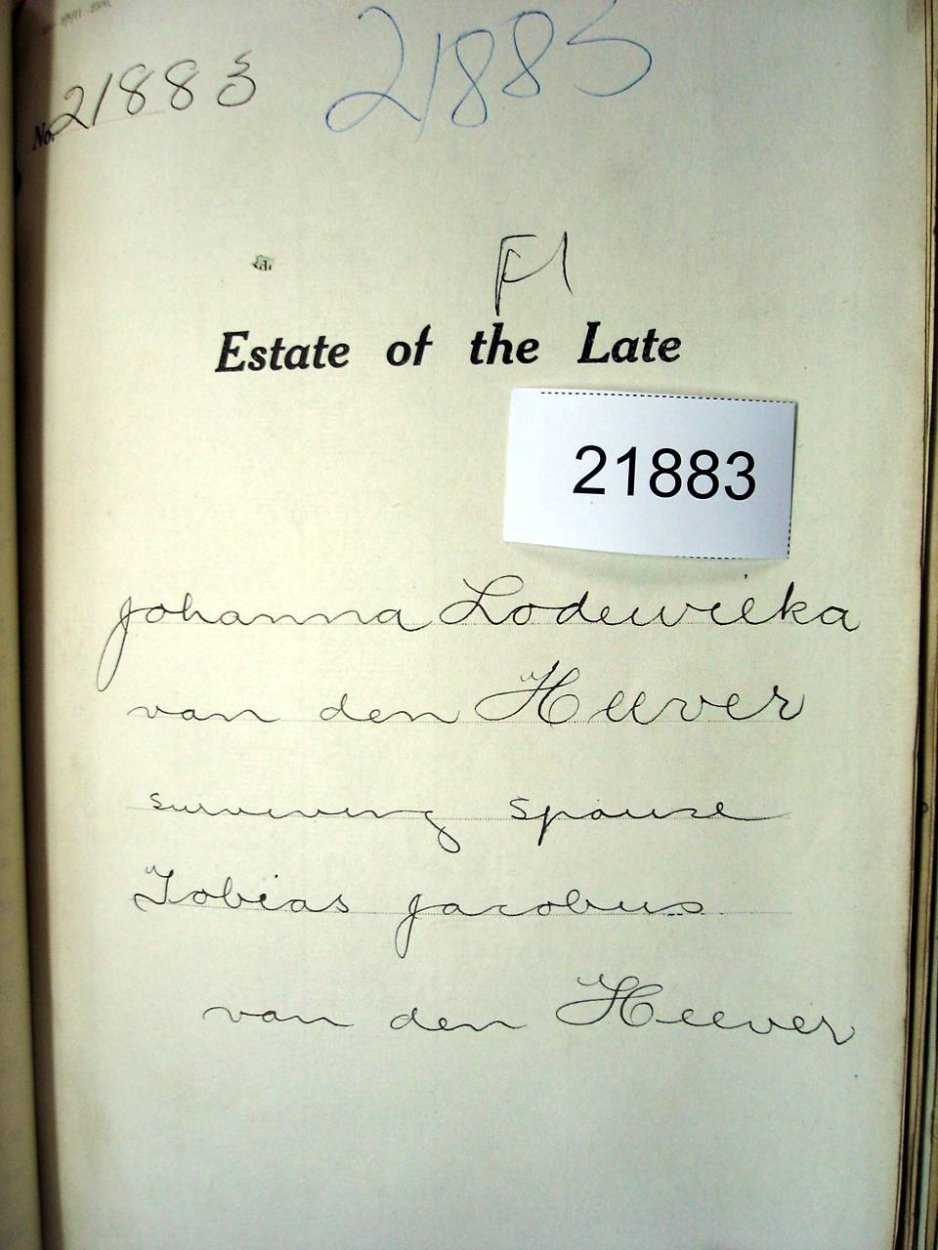 No. 21883
21883
F1
Estate of the Late
21883
Johanna Lodewika
van den Heever
surviving spouse
Tobias Jacobus
van den Heever